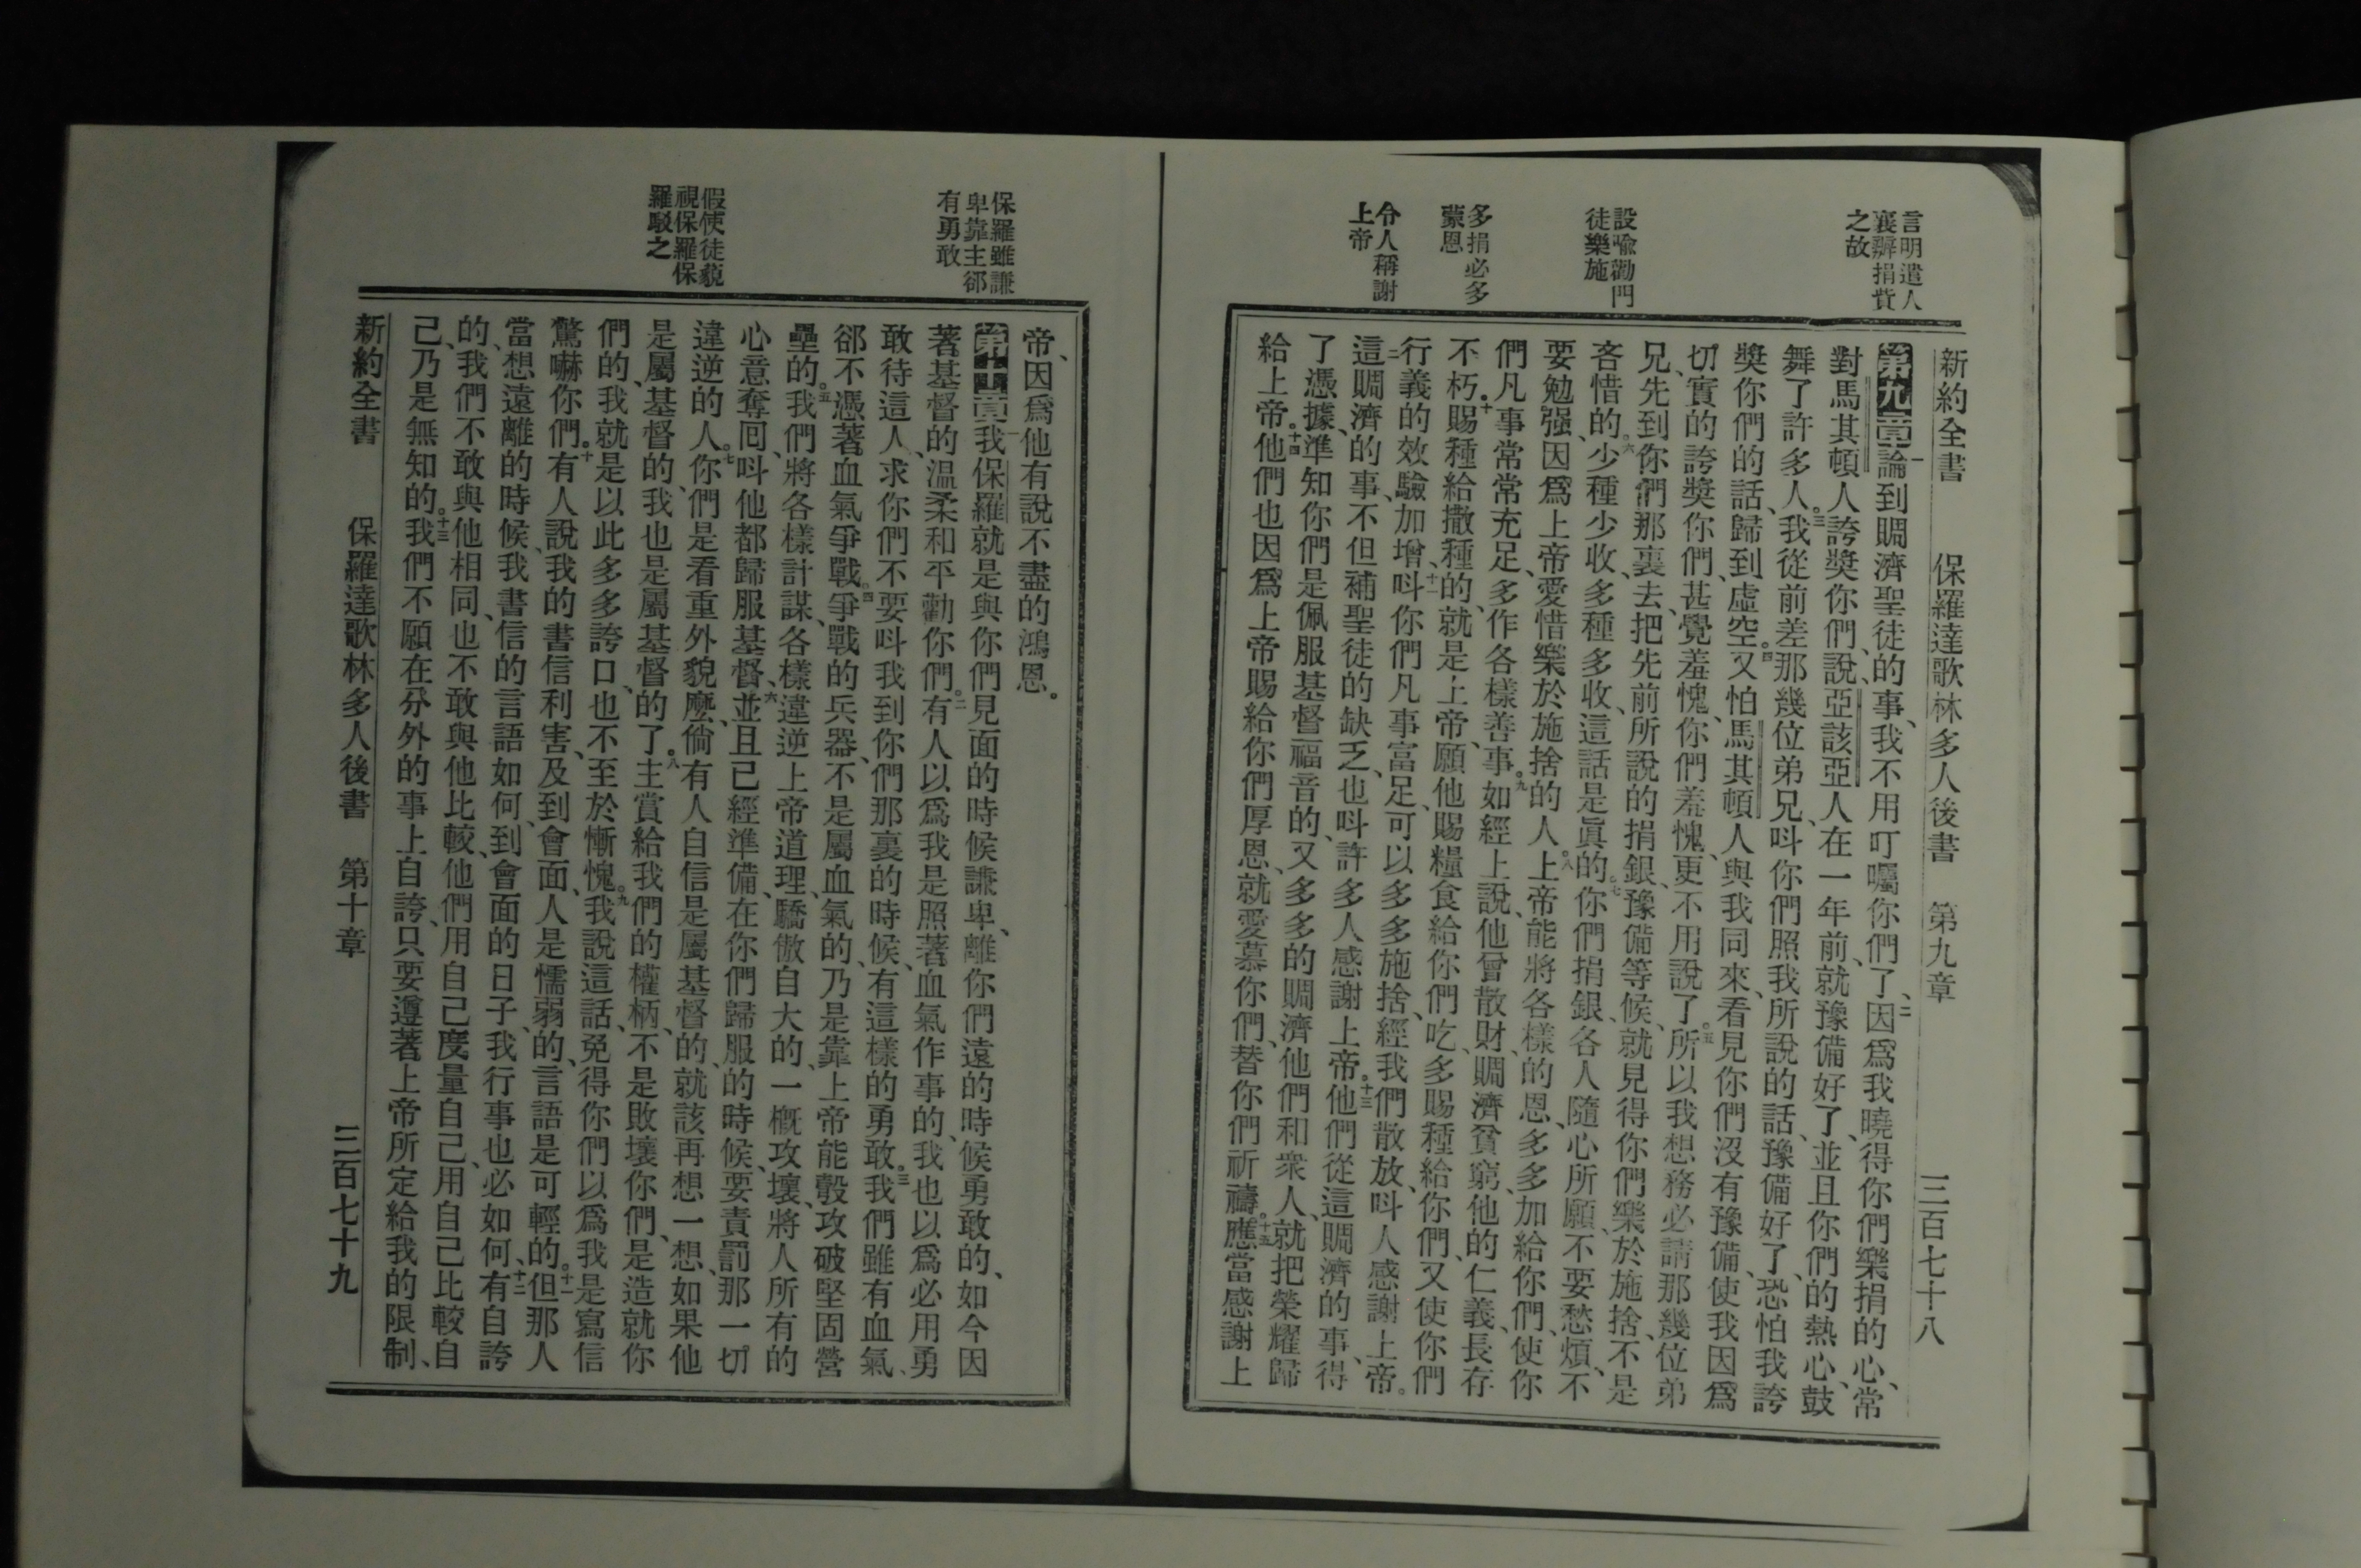 言明遣人
襄辦捐貲
之故
設喻勸門
徒樂施
多捐必多
蒙恩
令人稱謝
上帝
新約全書 保羅達歌林多人後書 第九章 三百七十八
第九章一論到賙濟聖徒的事、我不用叮囑你們了、二因爲我曉得你們樂捐的心、常
對馬其頓人誇獎你們、說、亞該亞人在一年前、就豫備好了、並且你們的熱心、鼓
舞了許多人。三我從前差那幾位弟兄、呌你們照我所說的話、豫備好了、恐怕我誇
獎你們的話、歸到虛空。四又怕馬其頓人與我同來、看見你們沒有豫備、使我因爲
切實的誇獎你們、甚覺羞愧、你們羞愧、更不用說了。五所以我想務必請那幾位弟
兄先到你們那裏去、把先前所說的捐銀、豫備等候、就見得你們樂於施捨、不是
吝惜的。六少種少收、多種多收、這話是眞的。七你們捐銀、各人隨心所願、不要愁煩、不
要勉强、因爲上帝愛惜樂於施捨的人。八上帝能將各樣的恩、多多加給你們、使你
們凡事常常充足、多作各樣善事。九如經上說、他曾散財、賙濟貧窮、他的仁義、長存
不朽。十賜種給撒種的、就是上帝、願他賜糧食給你們吃、多賜種給你們、又使你們
行義的效驗加增、十一呌你們凡事富足、可以多多施捨、經我們散放、呌人感謝上帝。
十二這賙濟的事、不但補聖徒的缺乏、也呌許多人感謝上帝。十三他們從這賙濟的事、得
了憑據、準知你們是佩服基督福音的、又多多的賙濟他們和衆人、就把榮耀歸
給上帝。十四他們也因爲上帝賜給你們厚恩、就愛慕你們、替你們祈禱。十五應當感謝上
保羅雖謙
卑靠主郤
有勇敢
假使徒藐
視保羅保
羅駁之
帝、因爲他有說不盡的鴻恩。
第十章一我保羅就是與你們見面的時候謙卑、離你們遠的時候勇敢的、如今因
著基督的溫柔和平勸你們。二有人以爲我是照著血氣作事的、我也以爲必用勇
敢待這人、求你們不要呌我到你們那裏的時候、有這樣的勇敢。三我們雖有血氣、
郤不憑著血氣爭戰。四爭戰的兵器、不是屬血氣的、乃是靠上帝能彀攻破堅固營
壘的。五我們將各樣計謀、各樣違逆上帝道理、驕傲自大的、一槪攻壞、將人所有的
心意奪回、呌他都歸服基督、六並且已經準備、在你們歸服的時候、要責罰那一切
違逆的人。七你們是看重外貌麽、倘有人自信是屬基督的、就該再想一想、如果他
是屬基督的、我也是屬基督的了。八主賞給我們的權柄、不是敗壞你們、是造就你
們的、我就是以此多多誇口、也不至於慚愧。九我說這話、免得你們以爲我是寫信
驚嚇你們。十有人說、我的書信利害、及到會面、人是懦弱的、言語是可輕的。十一但那人
當想遠離的時候、我書信的言語如何、到會面的日子、我行事也必如何、十二有自誇
的、我們不敢與他相同、也不敢與他比較、他們用自己度量自己、用自己比較自
己、乃是無知的。十三我們不願在分外的事上自誇、只要遵著上帝所定給我的限制、
新約全書 保羅達歌林多人後書 第十章 三百七十九